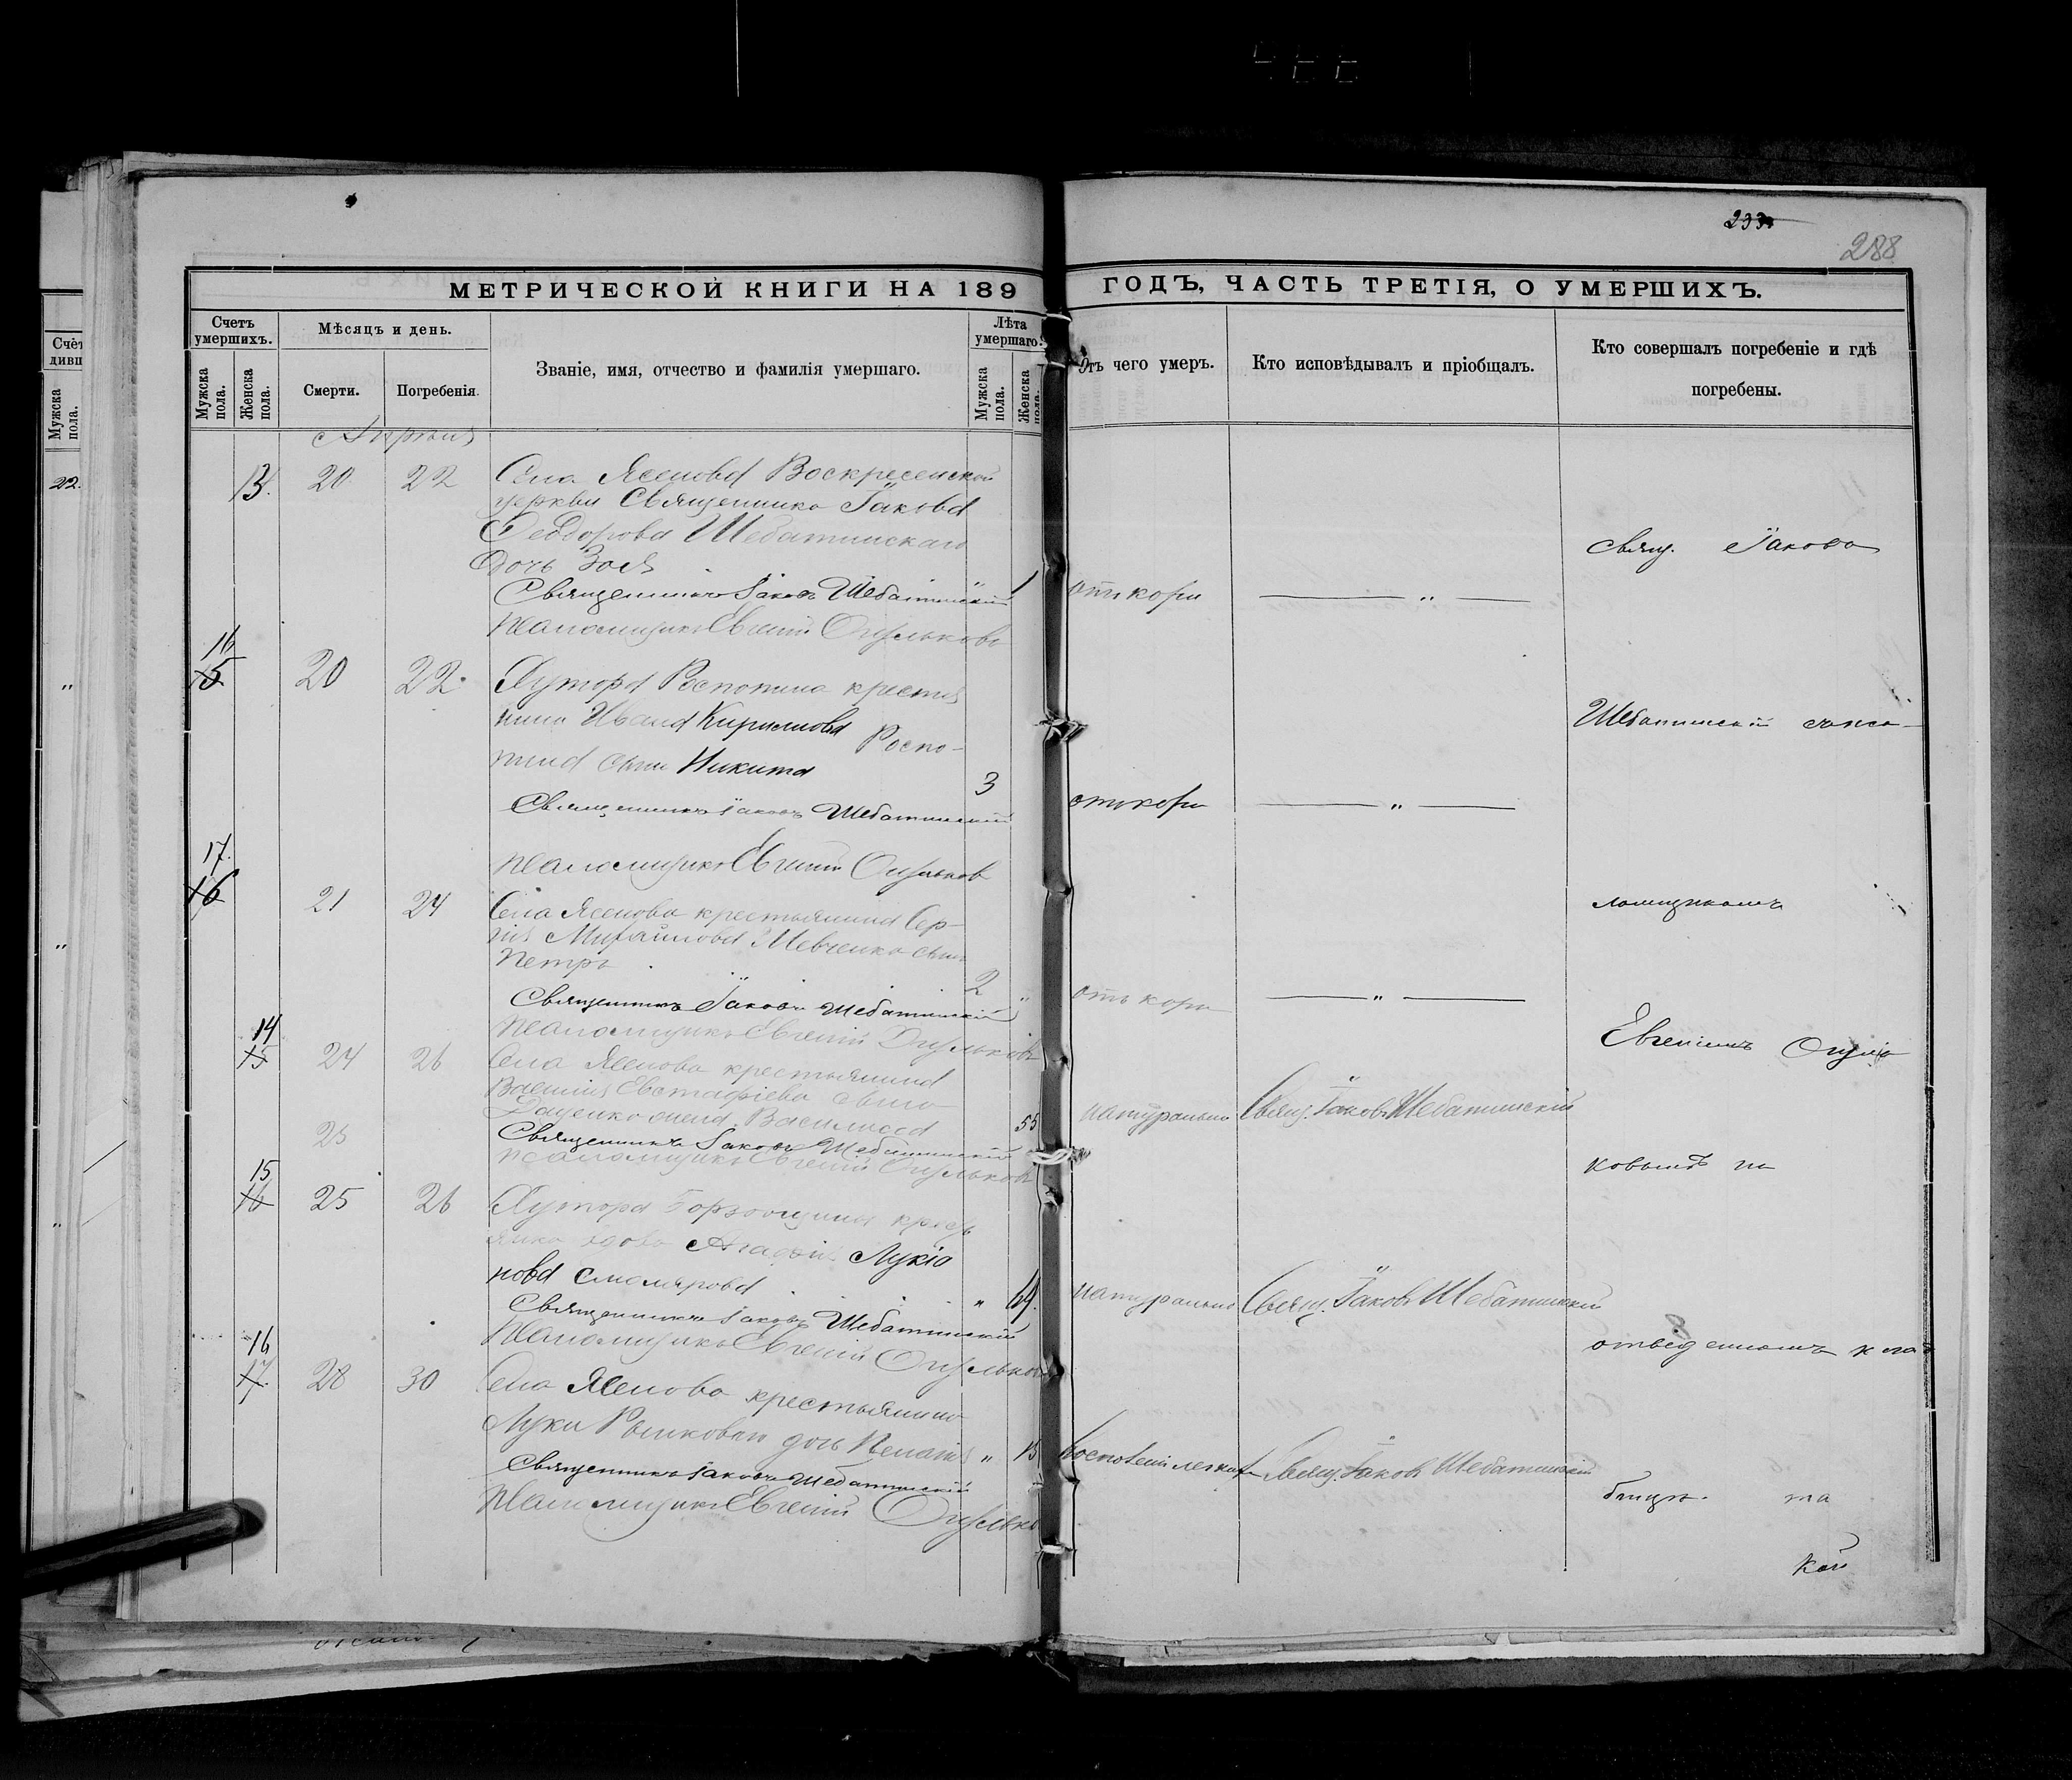 233
288
МЕТРИЧЕСКОЙ КНИГИ НА 189 ГОДЪ, ЧАСТЬ ТРЕТІЯ, О УМЕРШИХЪ.
Счетъ умершихъ.
Мѣсяцъ и день.
Званіе, имя, отчество и фамилія умершаго.
Лѣта умершаго.
Отъ чего умеръ.
Кто исповѣдывалъ и пріобщалъ.
Кто совершалъ погребеніе и гдѣ
погребены.
Мужска пола.
Женска пола.
Смерти.
Погребенія.
Мужска пола.
Женска пола.
Апрѣля
13. 20 22 Села Ясенова Воскресенской
церкви Священника Іакова
Феодорова Шебатинскаго
дочь Зоя
Священникъ Іаковъ Шебатинскій 1 отъ кори — " —
Псаломщикъ Евгеній
16
15 20 22 Хутора Роспопина крестья
нина Ивана Кирилова Роспо-
пина сынъ Никита 3
Священникъ Іаковъ Шебатинскій отъ кори — " —
Псаломщикъ Евгеній
17.
16 21 24 Села Ясенова крестьянина Сер-
гія Михайлова Шевченко сынъ
Петръ 2
Священникъ Іаковъ Шебатинскій " отъ кори — " —
Псаломщикъ Евгеній
14
15 24 26 Села Ясенова крестьянина
Василія Евстафіева
жена Василисса 55 натурально Свящ. Іаковъ Шебатинскій
25 Священникъ Іаковъ Шебатинскій
Псаломщикъ Евгеній
15
16 25 26 Хутора кресть
янка вдова Агафія Лукіа
нова Столярова " 64. натурально Свящ. Іаковъ Шебатинскій
Священникъ Іаковъ Шебатинскій
Псаломщикъ Евгеній
16
17. 28 30 Села Ясенова крестьянина
Луки дочь Пелагія " 13 легкихъ Свящ. Іаковъ Шебатинскій
Священникъ Іаковъ Шебатинскій
Псаломщикъ Евгеній
Свящ. Іаковъ
Шебатинскій съ пса-
ломщикомъ
Евгеніемъ
ковымъ на
отведенномъ клад
бищѣ.
Счет
дивш
Мужска пола.
22.
"
"
"